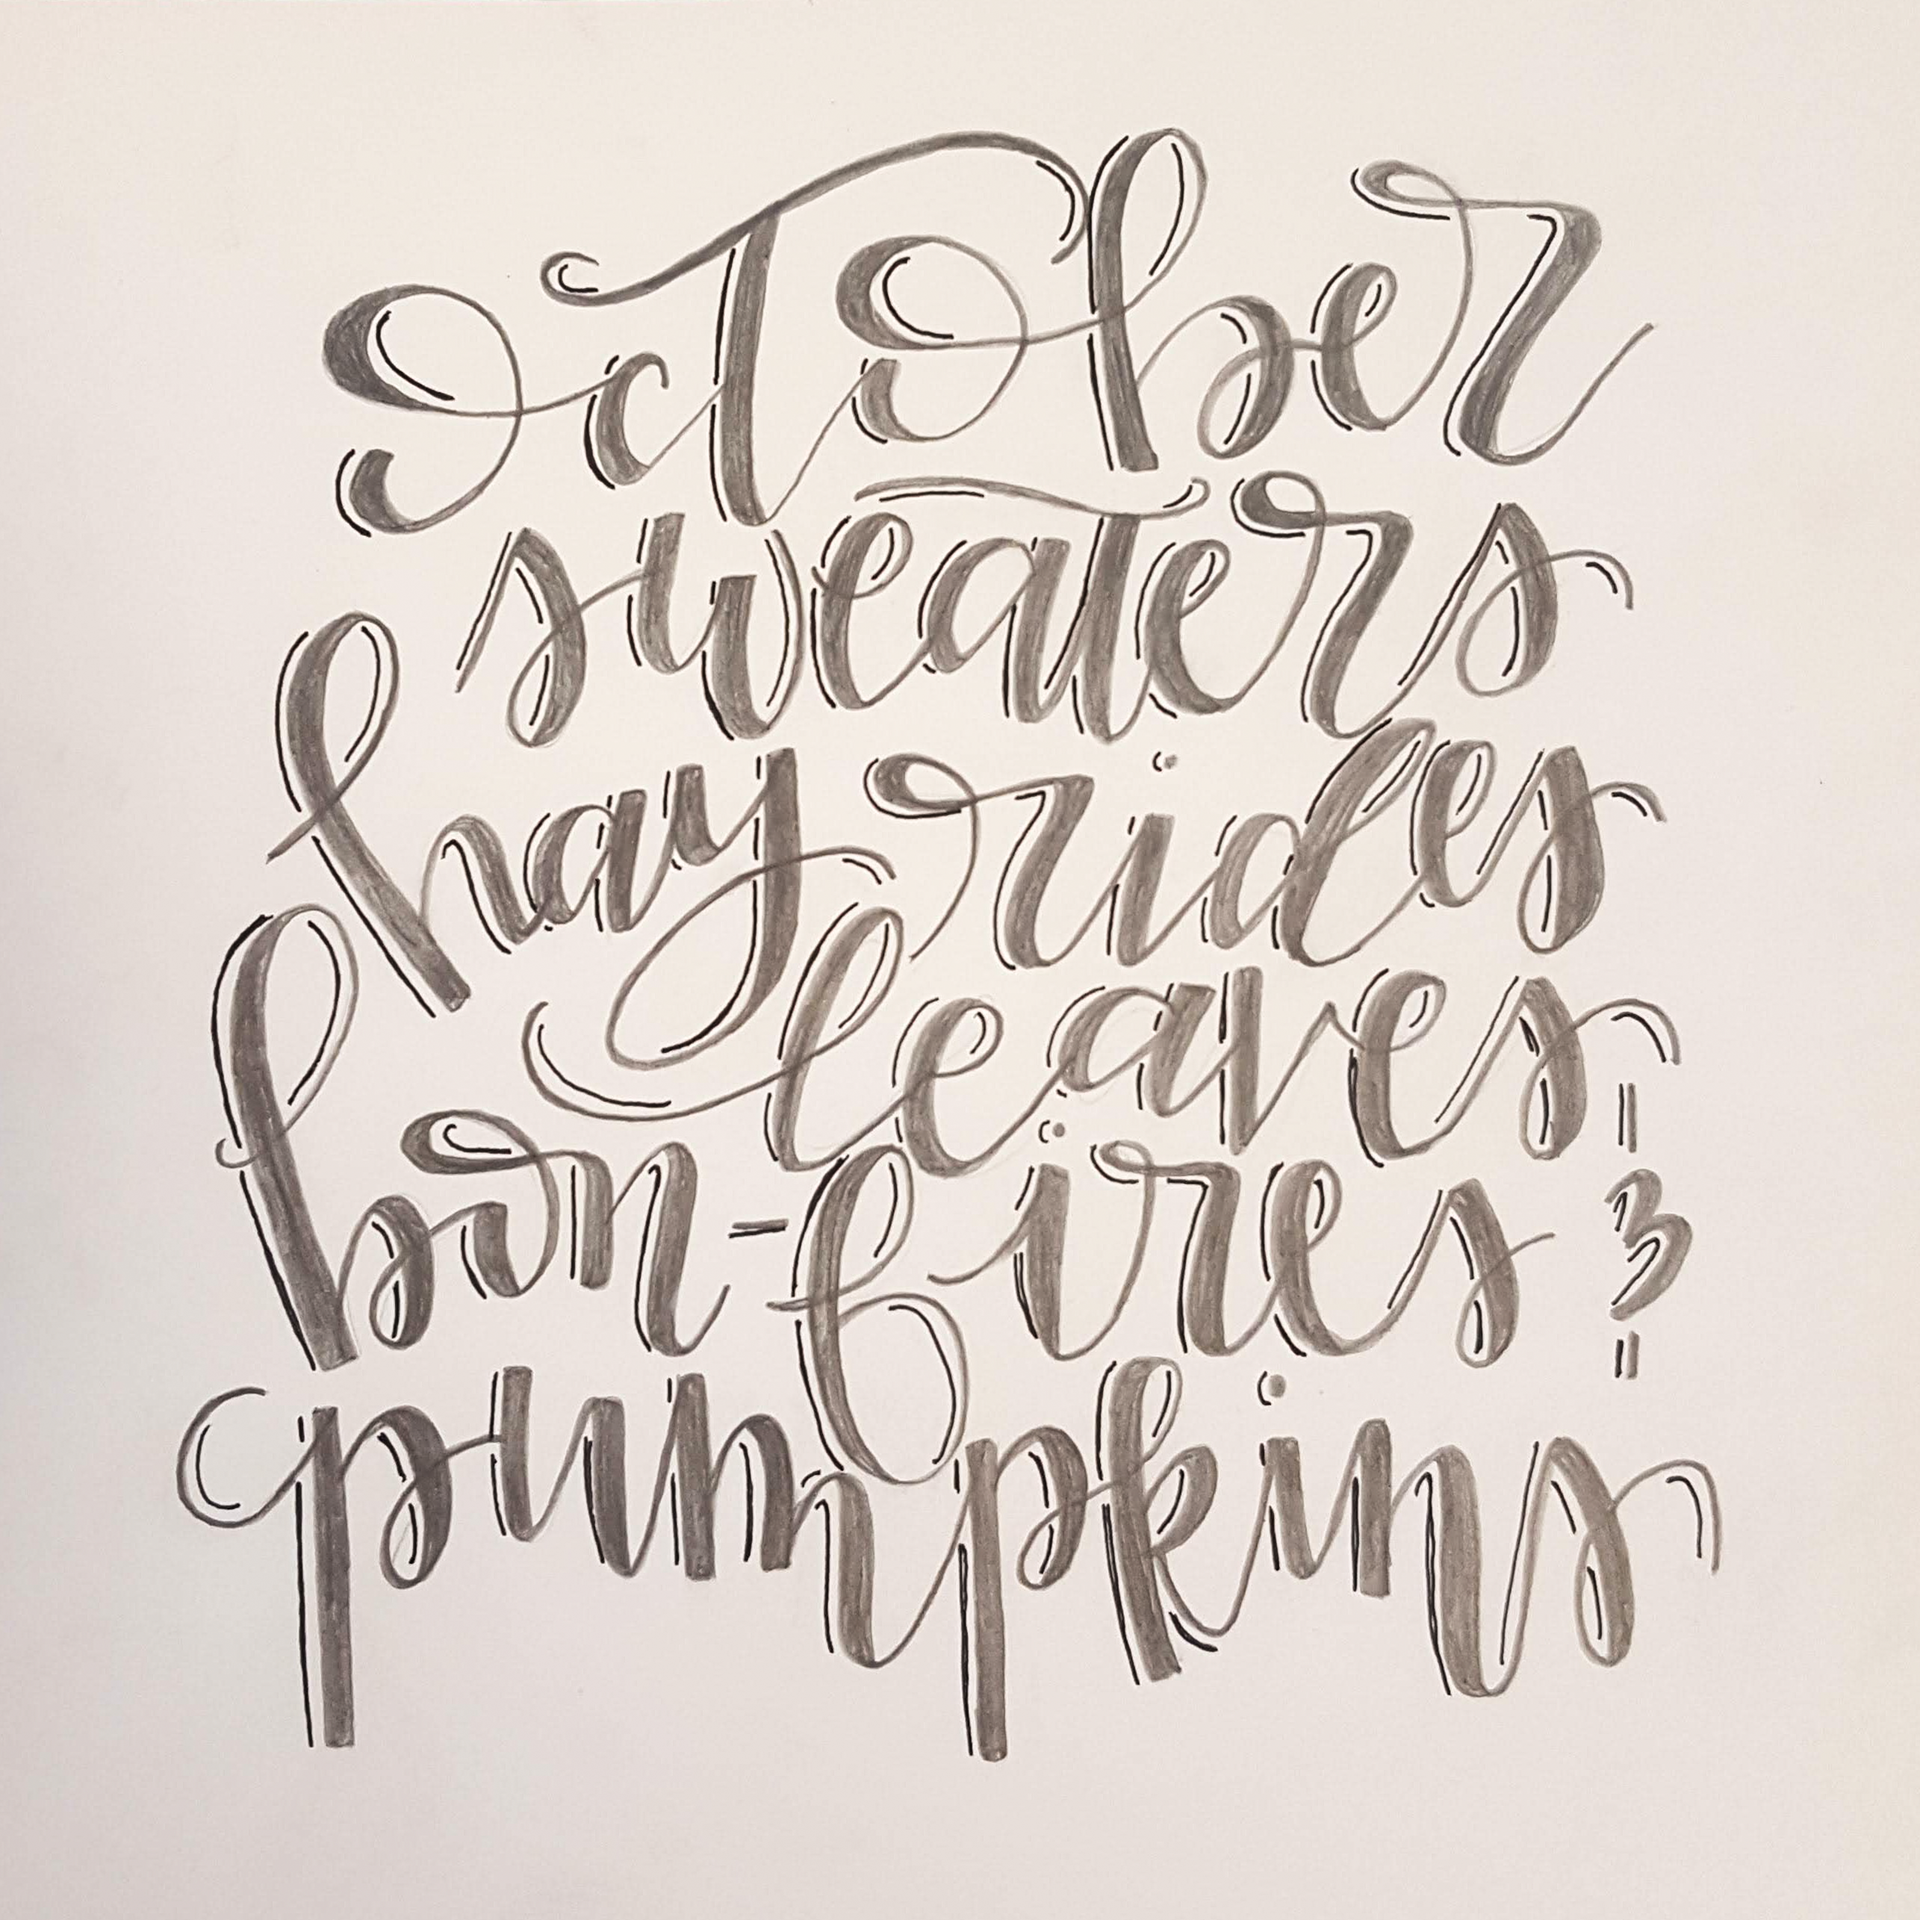 october
sweaters
hay rides
leaves
bon-fires &
pumpkins